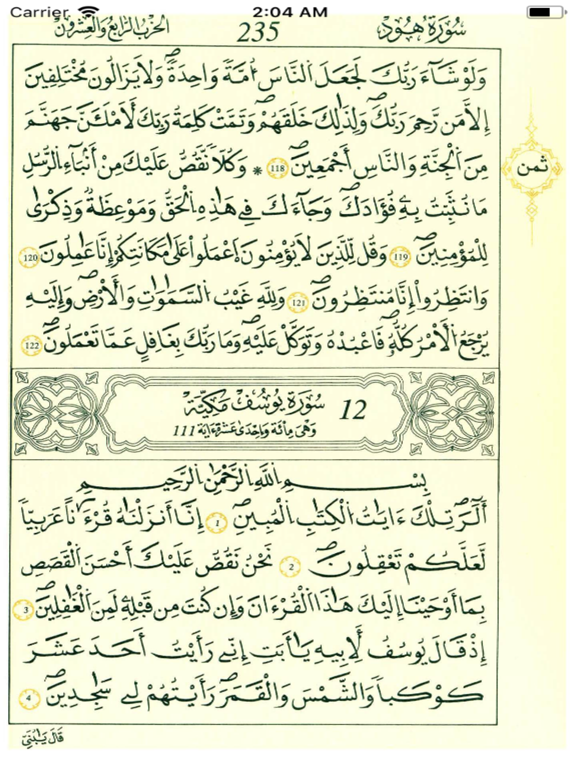 Carrier 2:04 AM
سُورَةُ هُودٍ 235 الحزب الرابع والعشرون
وَلَوْ شَآءَ رَبُّكَ لَجَعَلَ اَ۬لنَّاسَ أُمَّةٗ وَٰحِدَةٗۖ وَلَا يَزَالُونَ مُخْتَلِفِينَ
إِلَّا مَن رَّحِمَ رَبُّكَۖ وَلِذَٰلِكَ خَلَقَهُمْۖ وَتَمَّتْ كَلِمَةُ رَبِّكَ لَأَمْلَأَنَّ جَهَنَّمَ
مِنَ اَ۬لْجِنَّةِ وَالنَّاسِ أَجْمَعِينَۖ 118 * وَكُلّٗا نَّقُصُّ عَلَيْكَ مِنْ أَنۢبَآءِ اِ۬لرُّسُلِ
ثمن
مَا نُثَبِّتُ بِهِۦ فُؤَادَكَۖ وَجَآءَكَ فِے هَٰذِهِ اِ۬لْحَقُّ وَمَوْعِظَةٞ وَذِكْر۪ىٰ
لِلْمُؤْمِنِينَۖ 119 وَقُل لِّلذِينَ لَا يُؤْمِنُونَ اَ۪عْمَلُواْ عَلَىٰ مَكَانَتِكُمْ إِنَّا عَٰمِلُونَ 120
وَانتَظِرُوٓاْ إِنَّا مُنتَظِرُونَۖ 121 وَلِلهِ غَيْبُ اُ۬لسَّمَٰوَٰتِ وَالْأَرْضِۖ وَإِلَيْهِ
يَرْجِعُ اُ۬لْأَمْرُ كُلُّهُۥۖ فَاعْبُدْهُ وَتَوَكَّلْ عَلَيْهِۖ وَمَا رَبُّكَ بِغَٰفِلٍ عَمَّا تَعْمَلُونَۖ 122
12 سُورَةُ يُوسُفَ مَكِّيَّة
وَهْىَ مِائَة وَإِحْدَىٰ عَشْرَةَ ءَايَة 111
بِسْمِ اِ۬للَّهِ اِ۬لرَّحْمَٰنِ اِ۬لرَّحِيمِ
أَلَٓرۖ تِلْكَ ءَايَٰتُ اُ۬لْكِتَٰبِ اِ۬لْمُبِينِۖ 1 إِنَّآ أَنزَلْنَٰهُ قُرْءَٰناً عَرَبِيّاٗ
لَّعَلَّكُمْ تَعْقِلُونَۖ 2 نَحْنُ نَقُصُّ عَلَيْكَ أَحْسَنَ اَ۬لْقَصَصِ
بِمَآ أَوْحَيْنَآ إِلَيْكَ هَٰذَا اَ۬لْقُرْءَانَ وَإِن كُنتَ مِن قَبْلِهِۦ لَمِنَ اَ۬لْغَٰفِلِينَۖ 3
إِذْ قَالَ يُوسُفُ لِأَبِيهِ يَٰٓأَبَتِ إِنِّے رَأَيْتُ أَحَدَ عَشَرَ
كَوْكَباٗ وَالشَّمْسَ وَالْقَمَرَۖ رَأَيْتُهُمْ لِے سَٰجِدِينَۖ 4
قَالَ يَٰبُنَيِّ